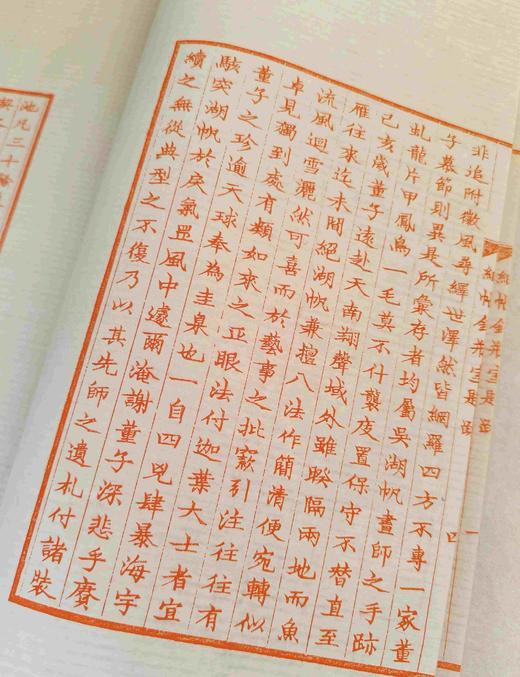 非追附徽風尋繹世澤然皆網羅四方不專一家董
子慕節則異是所彙存者均屬吳湖帆畫師之手跡
虬龍片甲鳳鳥一毛莫不什襲庋置保守不替直至
己亥歲董子遠赴天南翔聲域外雖睽隔兩地而魚
雁往來迄未間絕湖帆兼擅八法作簡清便宛轉似
流風迴雪灑然可喜而於藝事之批窾引注往往有
卓見獨到處有類如來之正眼法付迦葉大士者宜
董子之珍逾天球奉為圭臬也一自四兇肆暴海宇
駭突湖帆於戾氣罡風中遽爾淹謝董子深悲乎賡
續之無從典型之不復乃以其先師之遺札付諸裝
一
池凡三十